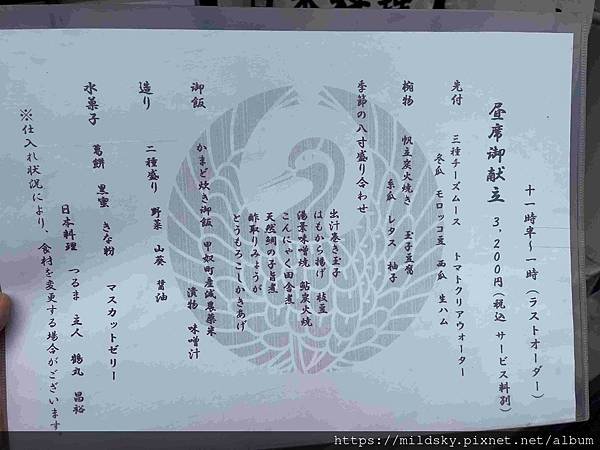 十一時半〜一時（ラストオーダー）
昼席御献立 3,200円（税込 サービス料別）
先付 三種チーズムース トマトクリアウォーター
冬瓜 モロッコ豆 西瓜 生ハム
椀物 帆立炭火焼き 玉子豆腐
糸瓜 レタス 柚子
季節の八寸盛り合わせ
出汁巻き玉子
はもかりと揚げ 枝豆
湯葉味噌焼 鮎炭火焼
こんにゃく田舎煮
天然鯛の子旨煮
酢取りみょうが
とうもろこしかきあげ
御飯 かまど炊き御飯 甲奴町産減農薬米
漬物 味噌汁
造り 二種盛り 野菜 山葵 醤油
水菓子 葛餅 黒蜜 きな粉 マスカットゼリー
日本料理 つるま 主人 鶴丸 昌裕
※仕入れ状況により、食材を変更する場合がございます。
https://mildsky.pixnet.net/album